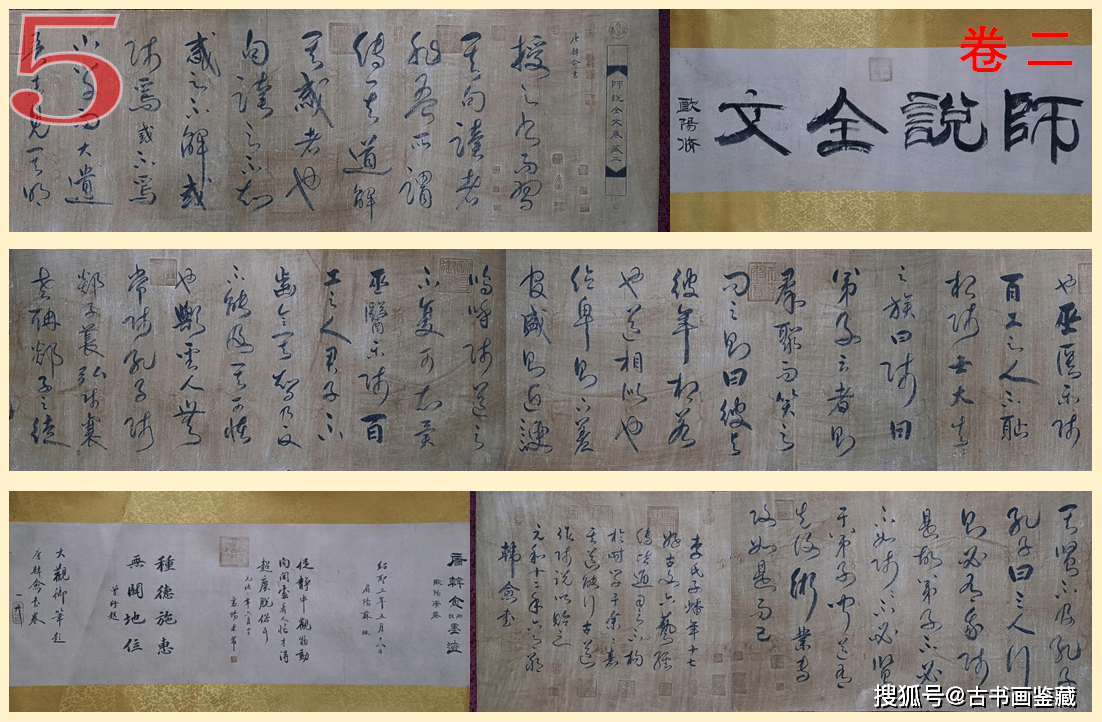 5
卷二
師說全文
歐陽脩
唐韓愈書
授之書而習
其句讀者
非吾所謂
傳其道解
其惑者也
句讀之不知
惑之不解或
師焉或不焉
小學而大遺
吾未見其明
也巫醫樂師
百工之人不恥
相師士大夫
之族曰師曰
弟子云者則
群聚而笑之
問之則曰彼與
彼年相若
也道相似也
位卑則足羞
官盛則近諛
嗚呼師道之
不復可知矣
巫醫樂師百
工之人君子不
齒今其智乃反
不能及其可怪
也歟聖人無
常師孔子師
郯子萇弘師襄
老聃郯子之徒
其賢不及孔子
孔子曰三人行
則必有我師
是故弟子不必
不如師師不必賢
於弟子聞道有
先後術業專
攻如是而已
李氏子蟠年十七
好古文六藝經
傳皆通習之不拘
於時學於余余嘉
其道能行古道
作師說以貽之
元和十三年六月
韓愈書
唐韓愈師說墨迹
歐陽脩題
紹聖三年五月十八日
從靜中觀物動
向閒處看人忙才得
超塵脫俗
種德施惠
無聞地位
大觀御筆題
唐韓愈書卷
搜狐号@古书画鉴藏